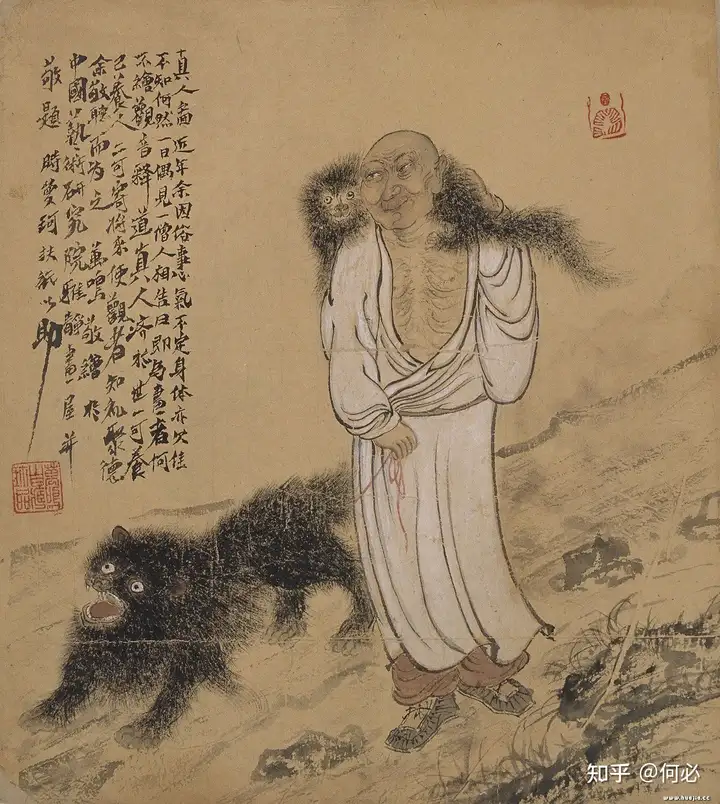 真人畵近年余因俗事心氣不定身体亦欠佳
不知何然一日偶見一僧人相告曰即为畫者何
不繪觀音釋道真人济於世一可養
己養人二可寄将來使觀者知礼聚德
余敬聽而为之 鳴敬繪於
中國藝術研究院雅靜畫屋并
敬題 時夢珂扶紙以助
知乎 @何必